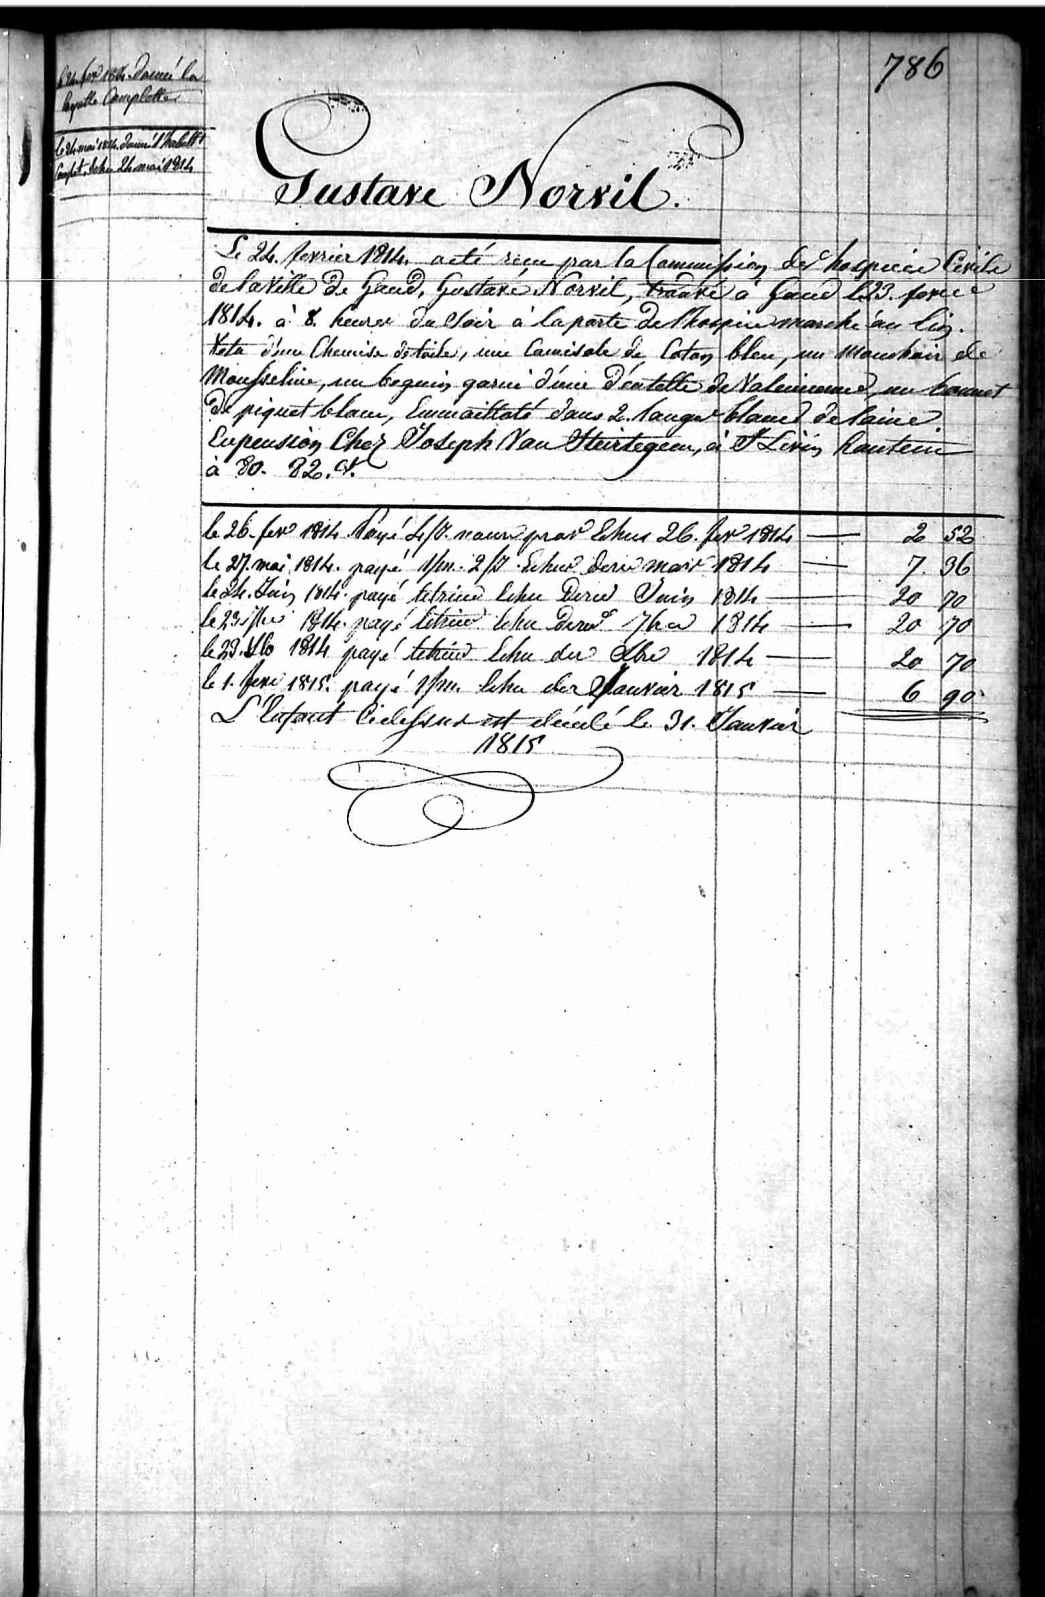 786
le 24. fev 1814. donné la
layette Complette
le 24 mai 1814. donné l'habillt
Complet. Echu 24 mai 1814
Gustave Norvil.
Le 24. fevrier 1814. a eté recu par la Commission des hospices Civils
de la Ville de Gand, Gustave Norvil, trouvé à Gand le 23. fevrier
1814. à 8. heures du Soir à la porte de l'hospice marché au lin.
Vetu d'une Chemise de toile, une Camisole de Coton bleu, un Mouchoir de
Mousseline, un beguin garni d'une Dentelle de Valencienne, un bonnet
de piquet blanc, Emmailloté dans 2. langes blancs de laine.
En pension Chez Joseph Van Heirtegem, à St Livin hautem
à 80. 82. Ct.
le 26. fev 1814. Payé nour prov Echus 26. fev 1814 — 2 52
le 27. mai 1814. payé 1/m. 2/7 Echus der mai 1814 — 7 36
le 24. Juin 1814. payé le trim Echu Der Juin 1814 — 20 70
le 23. 1814. payé le trim Echu Der 7bre 1814 — 20 70
le 23. 1814 payé le trim Echu der Xbre 1814 — 20 70
le 1. fevr 1815. payé 1/m. Echu der Janvier 1815 — 6 90
L'Enfant Cidessus est décédé le 31. Janvier
1815